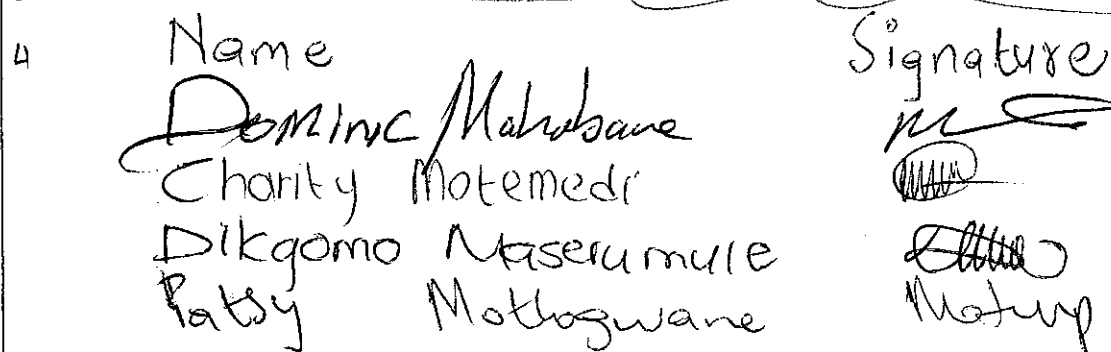 4 Name Signature
Dominic Mahabane
Charity Motemedi
Dikgomo Maserumule
Patsy Mothogwane